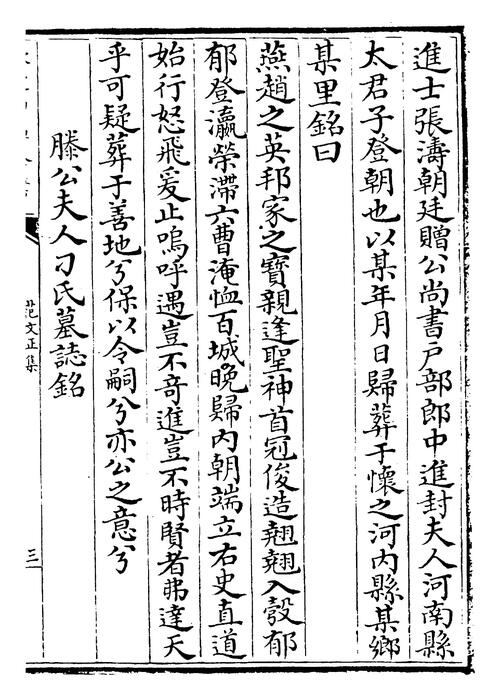 進士張濤朝廷贈公尚書戸部郎中進封夫人河南縣
太君子登朝也以某年月日歸葬于懷之河内縣某鄉
某里銘曰
燕趙之英邦家之寶親逢聖神首冠俊造翹翹入彀郁
郁登瀛榮滯六曹淹恤百城晩歸内朝端立右史直道
始行怒飛爰止嗚呼遇豈不竒進豈不時賢者弗達天
乎可疑葬于善地兮保以令嗣兮亦公之意兮
滕公夫人刁氏墓誌銘
范文正集
三